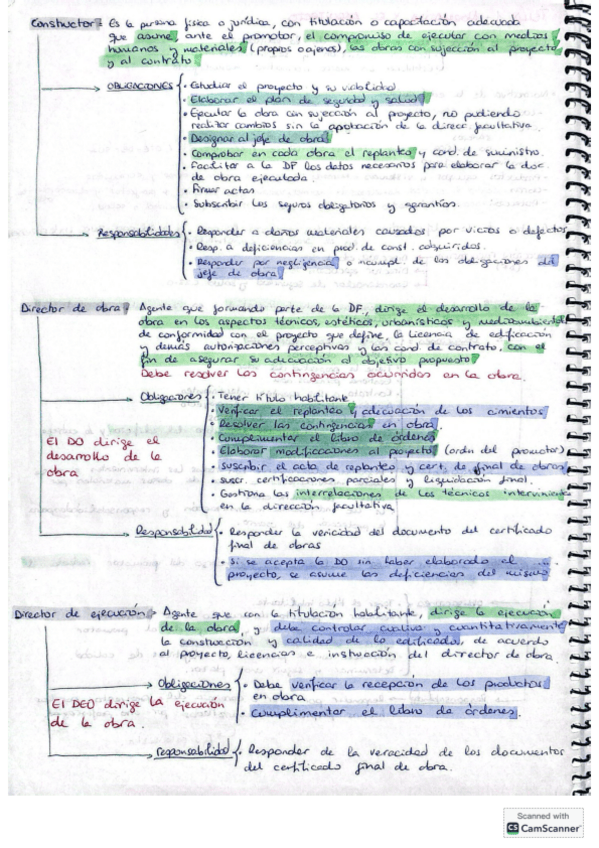 Constructor: Es la persona física o jurídica, con titulación o capacitación adecuada
que asume, ante el promotor, el compromiso de ejecutar con medios,
humanos y materiales (propios o ajenos), las obras con sujección al proyecto
y al contrato.
OBLIGACIONES
· Estudiar el proyecto y su viabilidad
· Elaborar el plan de seguridad y salud
· Ejecutar la obra con sujección al proyecto, no pudiendo
realizar cambios sin la aprobación de la direcc. facultativa.
· Designar al jefe de obra
· Comprobar en cada obra el replanteo y cond. de suministro.
· Facilitar a la DF los datos necesarios para elaborar la doc.
de obra ejecutada.
· Firmar actas
· Subscribir los seguros obligatorios y garantías.
Responsabilidades
· Responder a daños materiales causados por vicios o defectos
· Resp. a deficiencias en prod. de const. adquiridos.
· Responder por negligencia o incumpl. de las obligaciones del
jefe de obra
Director de obra: Agente que formando parte de la DF, dirige el desarrollo de la
obra en los aspectos técnicos, estéticos, urbanísticos y medioambiental
de conformidad con el proyecto que define, la licencia de edificación
y demás autorizaciones perceptivas y las cond. de contrato, con el
fin de asegurar su adecuación al objetivo propuesto
Debe resolver las contingencias ocurridas en la obra.
Obligaciones
· Tener título habilitante
· Verificar el replanteo y adecuación de los cimientos
· Resolver las contingencias en obra
· Cumplimentar el libro de órdenes
· Elaborar modificaciones al proyecto (orden del promotor)
· suscribir el acta de replanteo y cert. de final de obras
· suscr. certificaciones parciales y liquidación final.
· Gestiona las interrelaciones de los técnicos
en la dirección facultativa
El DO dirige el
desarrollo de la
obra
Responsabilidad
· Responder la vericidad del documento del certificado
final de obras
· Si se acepta la DO sin haber elaborado el
proyecto, se asume las deficiencias del mismo
Director de ejecución: Agente que con la titulación habilitante, dirige la ejecución
de la obra, y debe controlar cualitativa y cuantitativamente
la construcción y calidad de lo edificado, de acuerdo
al proyecto, licencias e instrucción del director de obra.
Obligaciones
· Debe verificar la recepción de los productos
en obra
· Cumplimentar el libro de órdenes.
El DEO dirige la ejecución
de la obra.
responsabilidad
· Responder de la veracidad de los documentos
del certificado final de obra.
Scanned with
CS CamScanner